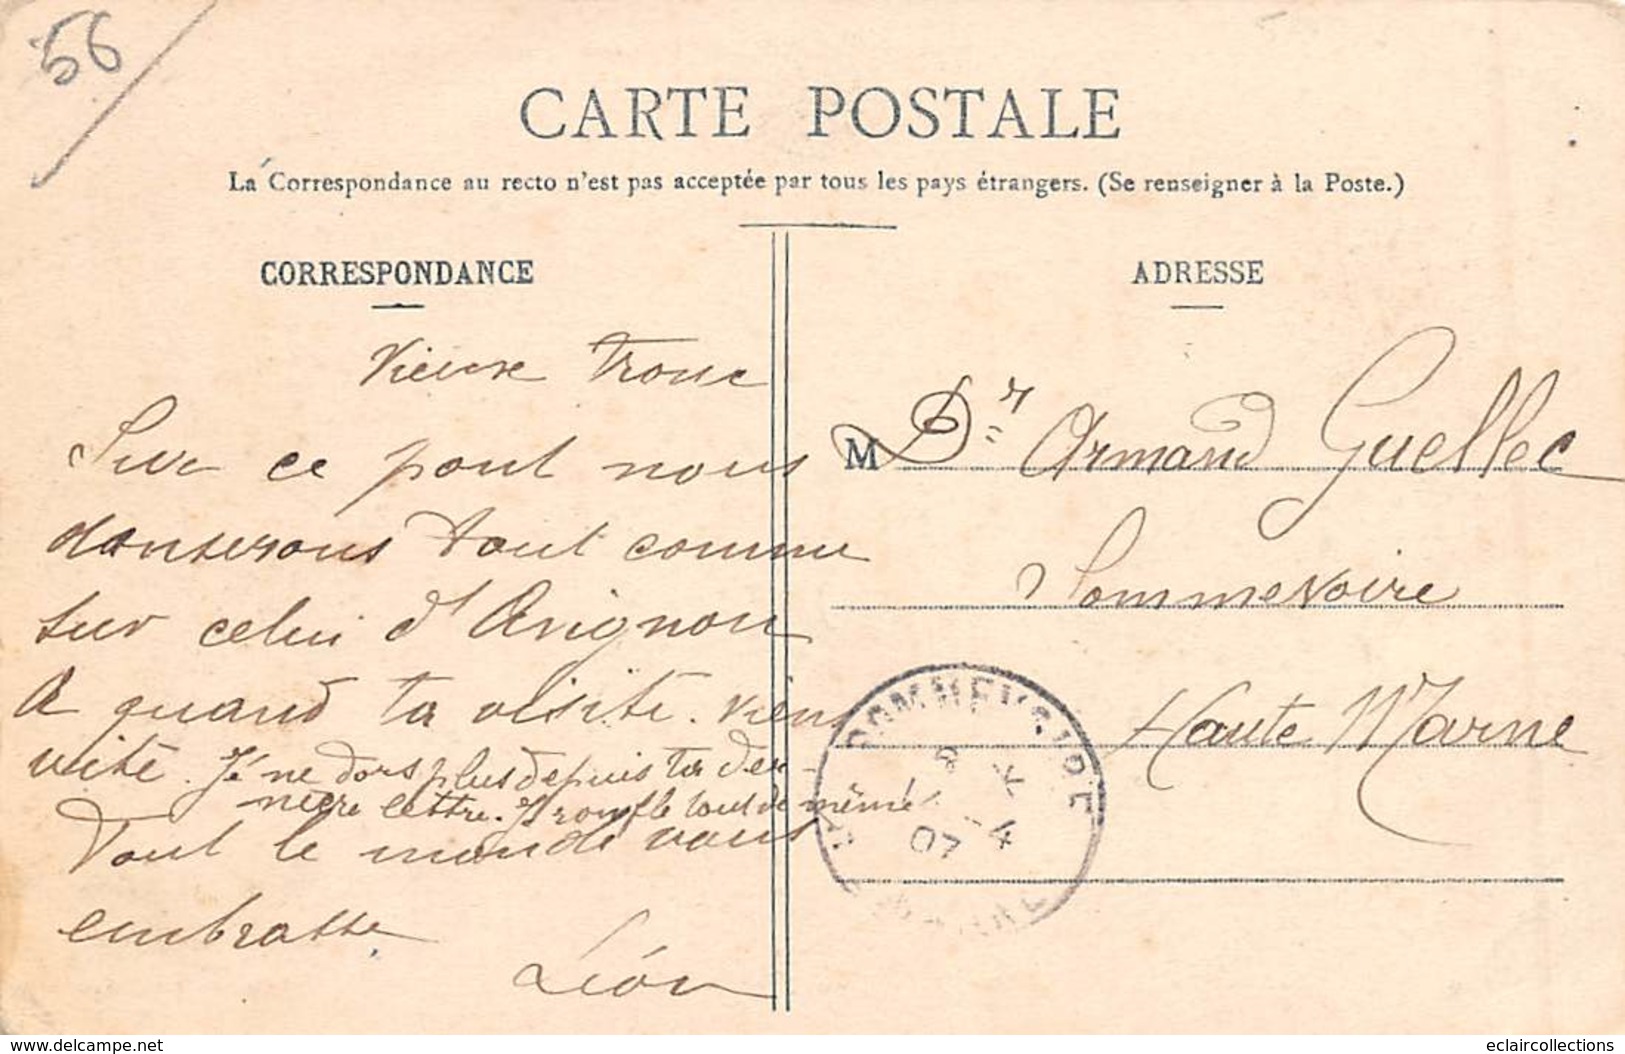 56
CARTE POSTALE
La Correspondance au recto n'est pas acceptée par tous les pays étrangers. (Se renseigner à la Poste.)
CORRESPONDANCE
Vieux
Sur ce pont nous
danserons tout comme
sur celui d'Avignon
A quand ta visite. Viens
vite. Je ne dors plus depuis ta der-
nière lettre. Je ronfle tout de même
Tout le monde vous
embrasse
Léon
ADRESSE
M Dr Armand Guellec
Sommevoire
Haute Marne
SOMMEVOIRE
07 4
MARNE
www.delcampe.net
eclaircollections